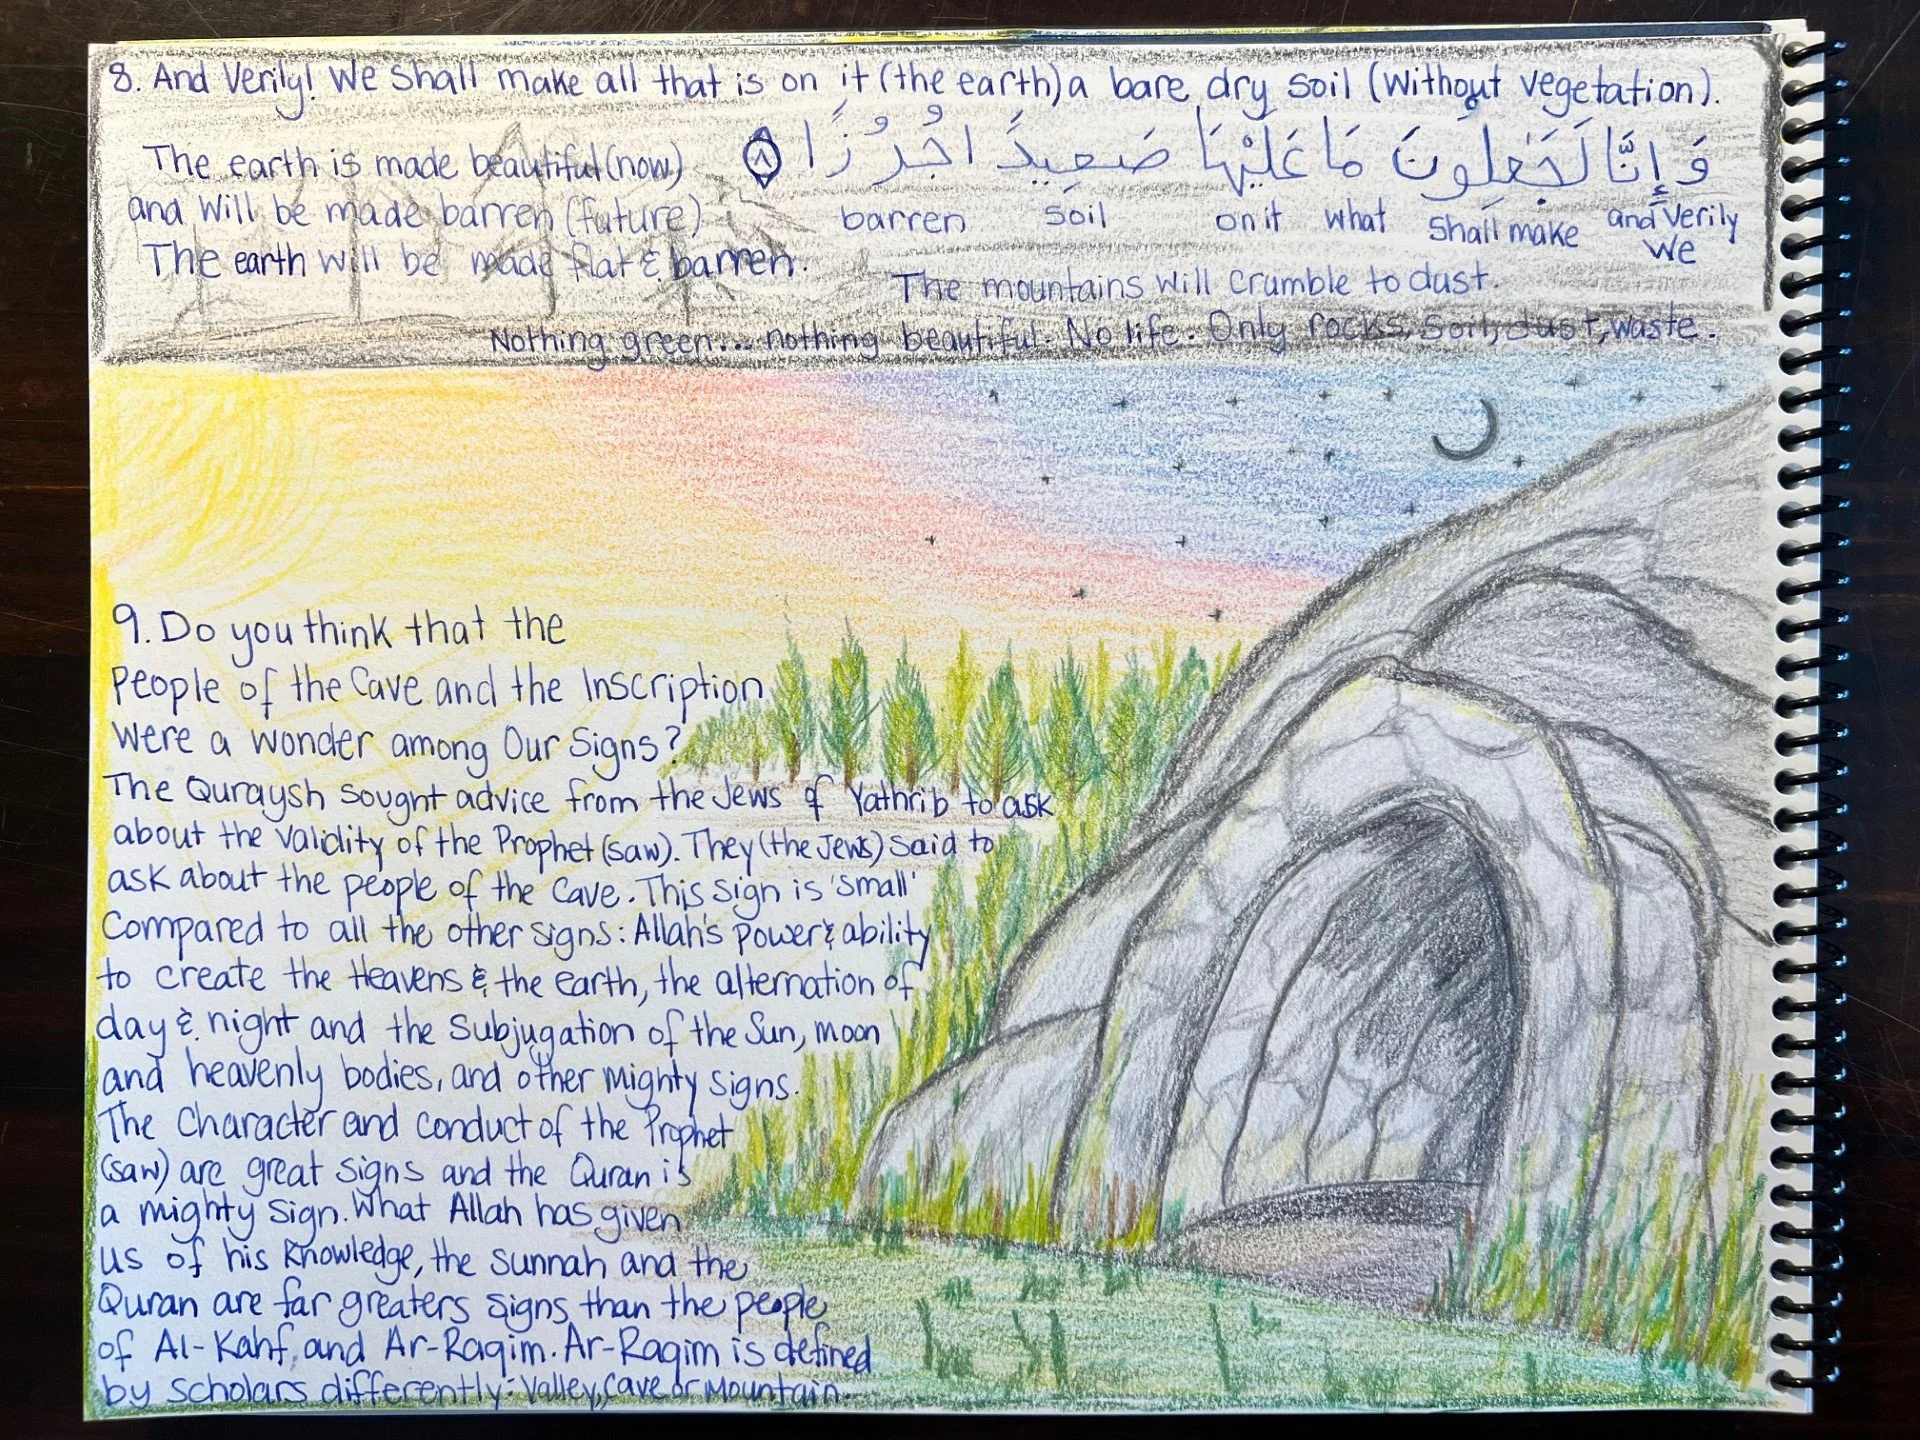 8. And Verily! We Shall make all that is on it (the earth) a bare dry soil (without vegetation).
وَإِنَّا لَجَٰعِلُونَ مَا عَلَيْهَا صَعِيدًا جُرُزًا ۝٨
The earth is made beautiful (now)
and will be made barren (future)
The earth will be made flat & barren.
barren soil on it what shall make and verily we
The mountains will crumble to dust.
Nothing green... nothing beautiful. No life. Only rocks, soil, dust, waste.
9. Do you think that the
People of the Cave and the Inscription
were a wonder among Our Signs?
The Quraysh sought advice from the Jews of Yathrib to ask
about the validity of the Prophet (saw). They (the Jews) said to
ask about the people of the Cave. This sign is 'small'
compared to all the other signs: Allah's power & ability
to create the Heavens & the earth, the alternation of
day & night and the subjugation of the Sun, moon
and heavenly bodies, and other mighty signs.
The Character and conduct of the Prophet
(saw) are great signs and the Quran is
a mighty sign. What Allah has given
us of his knowledge, the sunnah and the
Quran are far greaters signs than the people
of Al-Kahf, and Ar-Raqim. Ar-Raqim is defined
by scholars differently: Valley, Cave or Mountain.